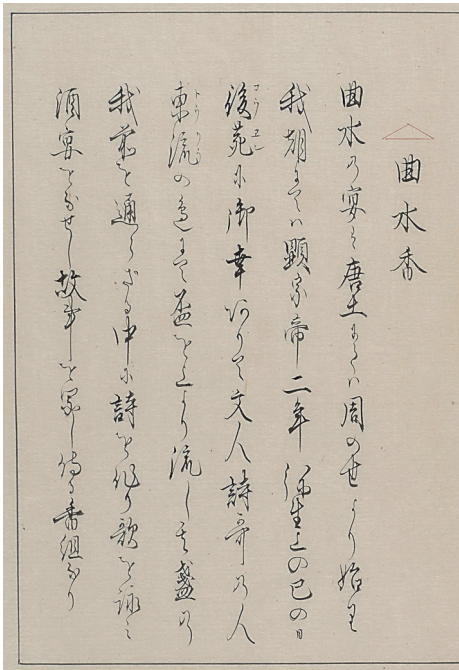 曲水香
曲水の宴は唐土にては周の世より始り
我朝にては顕宗帝二年弥生上の巳の日
後苑に御幸ありて文人詩哥の人
コウエン
東流の邊にて盃を上より流し其盞の
トウリウ
我前を通らざる中に詩を作り歌を詠み
酒宴をなせし故事を象し侍る香組なり